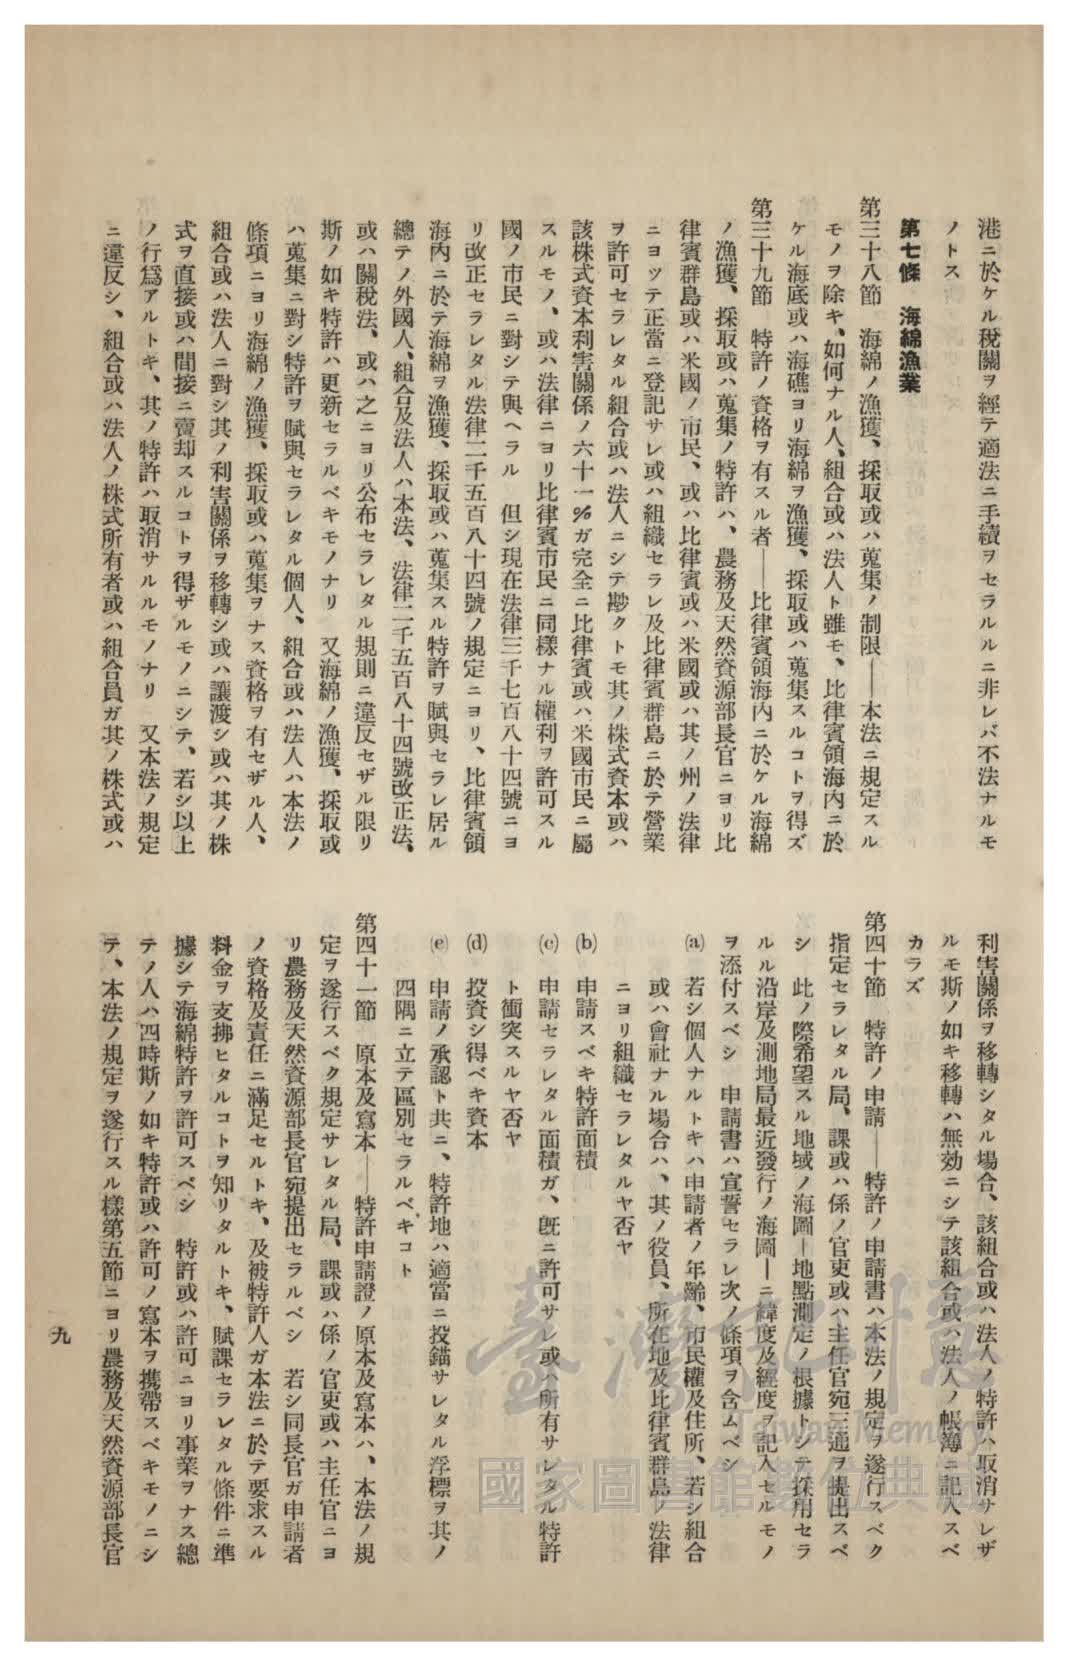 港ニ於ケル税關ヲ經テ適法ニ手續ヲセラルルニ非レバ不法ナルモ
ノトス
第七條　海綿漁業
第三十八節　海綿ノ漁獲、採取或ハ蒐集ノ制限——本法ニ規定スル
モノヲ除キ、如何ナル人、組合或ハ法人ト雖モ、比律賓領海内ニ於
ケル海底或ハ海礁ヨリ海綿ヲ漁獲、採取或ハ蒐集スルコトヲ得ズ
第三十九節　特許ノ資格ヲ有スル者——比律賓領海内ニ於ケル海綿
ノ漁獲、採取或ハ蒐集ノ特許ハ、農務及天然資源部長官ニヨリ比
律賓群島或ハ米國ノ市民、或ハ比律賓或ハ米國或ハ其ノ州ノ法律
ニヨツテ正當ニ登記サレ或ハ組織セラレ及比律賓群島ニ於テ營業
ヲ許可セラレタル組合或ハ法人ニシテ尠クトモ其ノ株式資本或ハ
該株式資本利害關係ノ六十一％ガ完全ニ比律賓或ハ米國市民ニ屬
スルモノ、或ハ法律ニヨリ比律賓市民ニ同樣ナル權利ヲ許可スル
國ノ市民ニ對シテ與ヘラル　但シ現在法律三千七百八十四號ニヨ
リ改正セラレタル法律二千五百八十四號ノ規定ニヨリ、比律賓領
海内ニ於テ海綿ヲ漁獲、採取或ハ蒐集スル特許ヲ賦與セラレ居ル
總テノ外國人、組合及法人ハ本法、法律二千五百八十四號改正法、
或ハ關税法、或ハ之ニヨリ公布セラレタル規則ニ違反セザル限リ
斯ノ如キ特許ハ更新セラルベキモノナリ　又海綿ノ漁獲、採取或
ハ蒐集ニ對シ特許ヲ賦與セラレタル個人、組合或ハ法人ハ本法ノ
條項ニヨリ海綿ノ漁獲、採取或ハ蒐集ヲナス資格ヲ有セザル人、
組合或ハ法人ニ對シ其ノ利害關係ヲ移轉シ或ハ讓渡シ或ハ其ノ株
式ヲ直接或ハ間接ニ賣却スルコトヲ得ザルモノニシテ、若シ以上
ノ行爲アルトキ、其ノ特許ハ取消サルルモノナリ　又本法ノ規定
ニ違反シ、組合或ハ法人ノ株式所有者或ハ組合員ガ其ノ株式或ハ
利害關係ヲ移轉シタル場合、該組合或ハ法人ノ特許ハ取消サレザ
ルモ斯ノ如キ移轉ハ無効ニシテ該組合或ハ法人ノ帳簿ニ記入スベ
カラズ
第四十節　特許ノ申請——特許ノ申請書ハ本法ノ規定ヲ遂行スベク
指定セラレタル局、課或ハ係ノ官吏或ハ主任官宛三通ヲ提出スベ
シ　此ノ際希望スル地域ノ海圖—地點測定ノ根據トシテ採用セラ
ルル沿岸及測地局最近發行ノ海圖—ニ緯度及經度ヲ記入セルモノ
ヲ添付スベシ　申請書ハ宣誓セラレ次ノ條項ヲ含ムベシ
(a)　若シ個人ナルトキハ申請者ノ年齡、市民權及住所、若シ組合
或ハ會社ナル場合ハ、其ノ役員、所在地及比律賓群島ノ法律
ニヨリ組織セラレタルヤ否ヤ
(b)　申請スベキ特許面積
(c)　申請セラレタル面積ガ、既ニ許可サレ或ハ所有サレタル特許
ト衝突スルヤ否ヤ
(d)　投資シ得ベキ資本
(e)　申請ノ承認ト共ニ、特許地ハ適當ニ投錨サレタル浮標ヲ其ノ
四隅ニ立テ區別セラルベキコト
第四十一節　原本及寫本——特許申請證ノ原本及寫本ハ、本法ノ規
定ヲ遂行スベク規定サレタル局、課或ハ係ノ官吏或ハ主任官ニヨ
リ農務及天然資源部長官宛提出セラルベシ　若シ同長官ガ申請者
ノ資格及責任ニ滿足セルトキ、及被特許人ガ本法ニ於テ要求スル
料金ヲ支拂ヒタルコトヲ知リタルトキ、賦課セラレタル條件ニ準
據シテ海綿特許ヲ許可スベシ　特許或ハ許可ニヨリ事業ヲナス總
テノ人ハ四時斯ノ如キ特許或ハ許可ノ寫本ヲ携帶スベキモノニシ
テ、本法ノ規定ヲ遂行スル樣第五節ニヨリ農務及天然資源部長官
九
臺灣記憶
Taiwan Memory
國家圖書館數位典藏